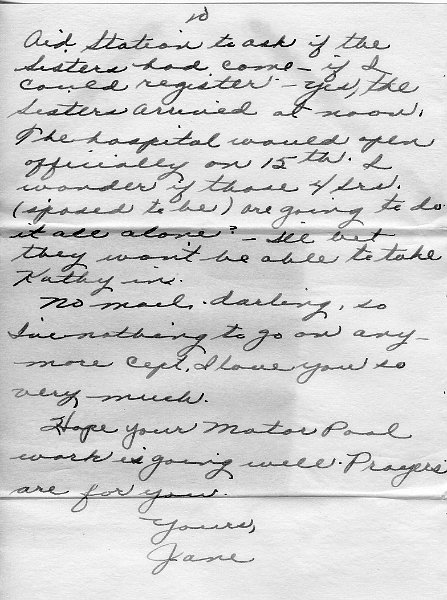 10
Aid Station to ask if the
Sisters had come - if I
could register - Yes, the
Sisters arrived at noon.
The hospital would open
officially on 15th. I
wonder if those 4 Srs.
(sposed to be) are going to do
it all alone? - Ill bet
they won't be able to take
Kathy in.
No mail, darling, so
I've nothing to go on any-
more cept, I love you so
very much.
Hope your Motor Pool
work is going well. Prayers
are for you.
Yours,
Jane